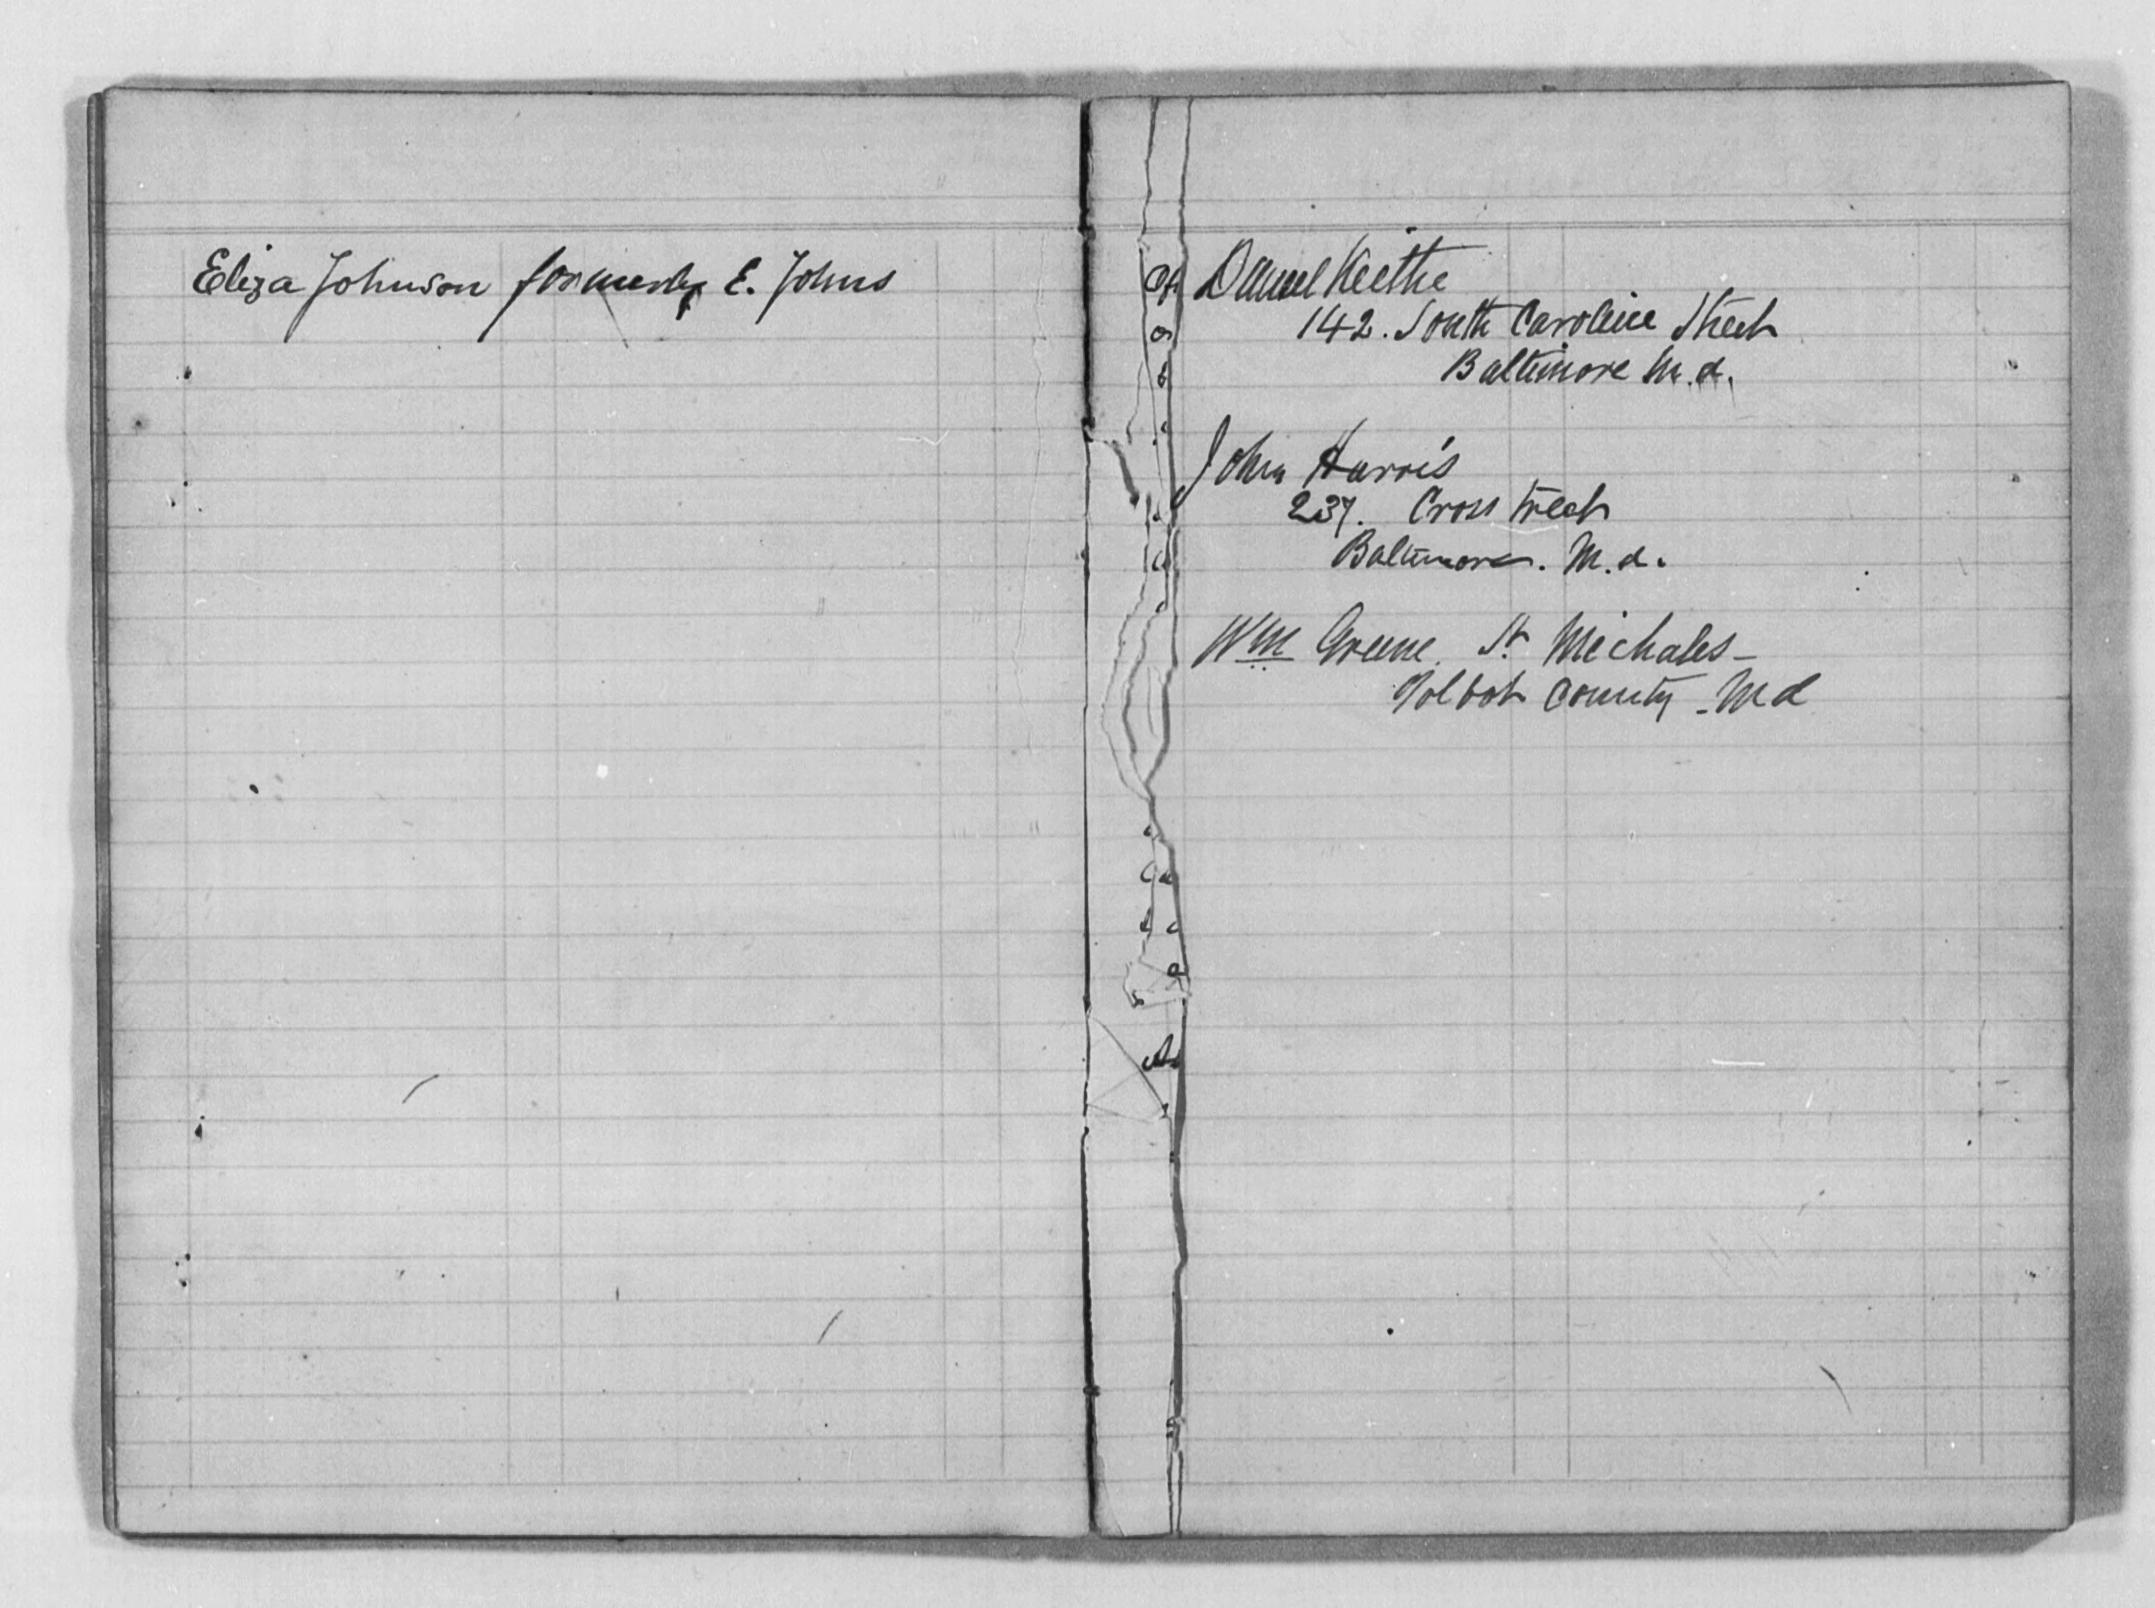 Eliza Johnson formerly E. Johns
Daniel Keithe
142. South Caroline Street
Baltimore M.d.
John Harris
237. Cross treet
Baltimore. M.d.
Wm Greene. St. Michales-
Tolbot County - Md